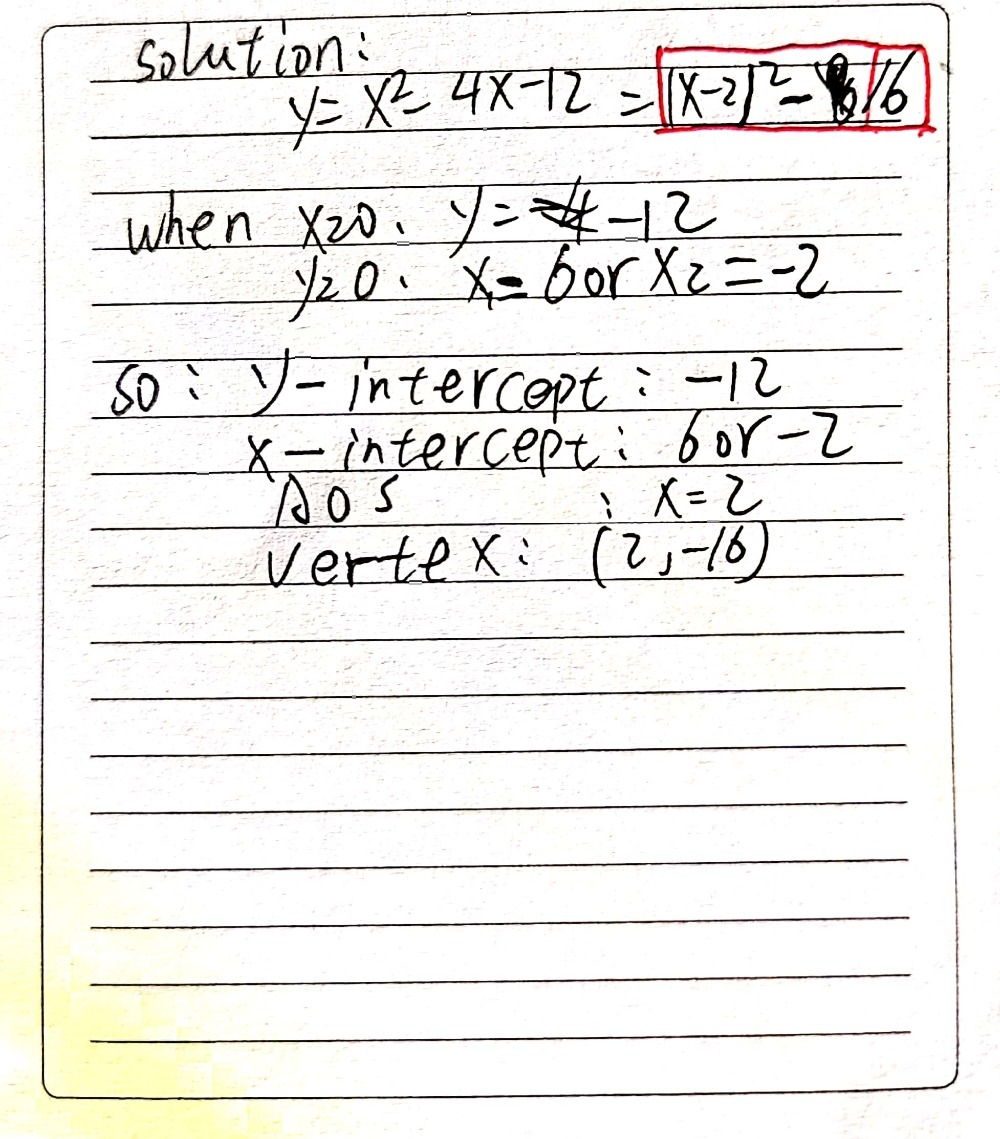 solution:
y = x² - 4x - 12 = (x-2)² - 16
when x=0. y = -12
y=0. x₁ = 6 or x₂ = -2
so: y-intercept: -12
x-intercept: 6 or -2
AOS : x = 2
vertex: (2, -16)